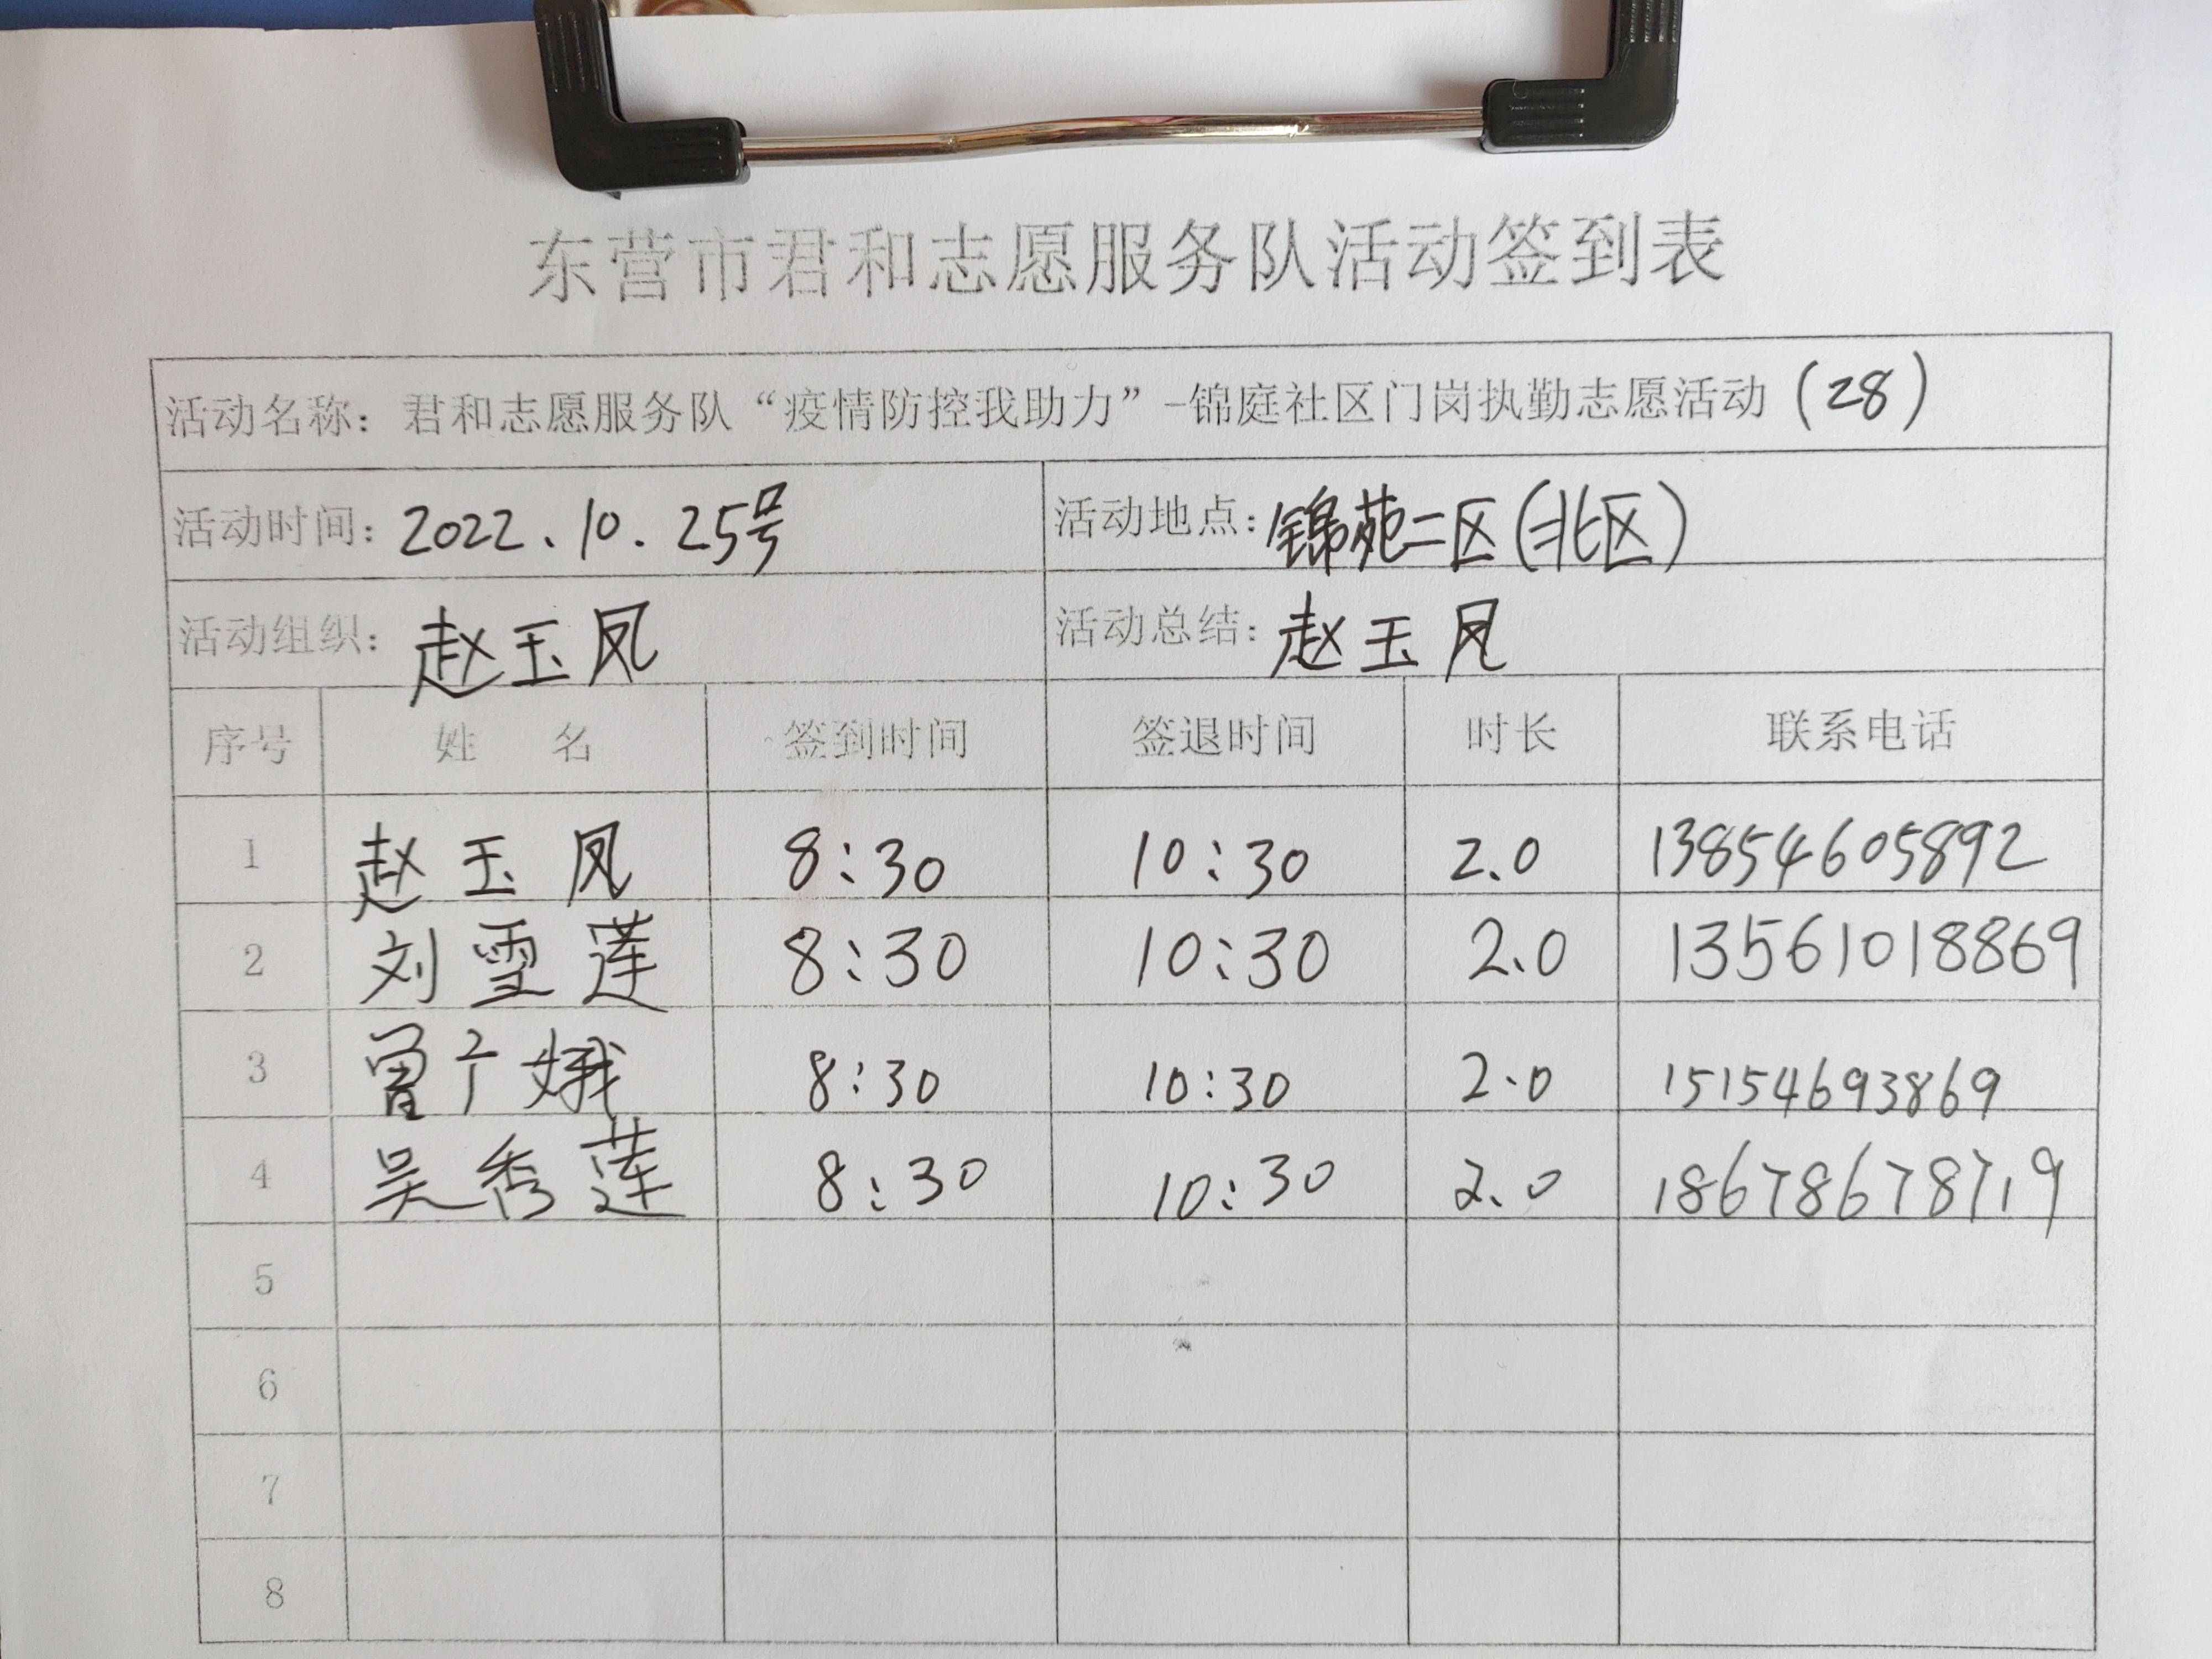 东营市君和志愿服务队活动签到表
活动名称：君和志愿服务队“疫情防控我助力”-锦庭社区门岗执勤志愿活动（28）
活动时间：2022.10.25号 活动地点：锦苑二区（北区）
活动组织：赵玉凤 活动总结：赵玉凤
序号 姓 名 签到时间 签退时间 时长 联系电话
1 赵玉凤 8:30 10:30 2.0 13854605892
2 刘雪莲 8:30 10:30 2.0 13561018869
3 曾广娥 8:30 10:30 2.0 15154693869
4 吴秀莲 8:30 10:30 2.0 18678678719
5
6
7
8